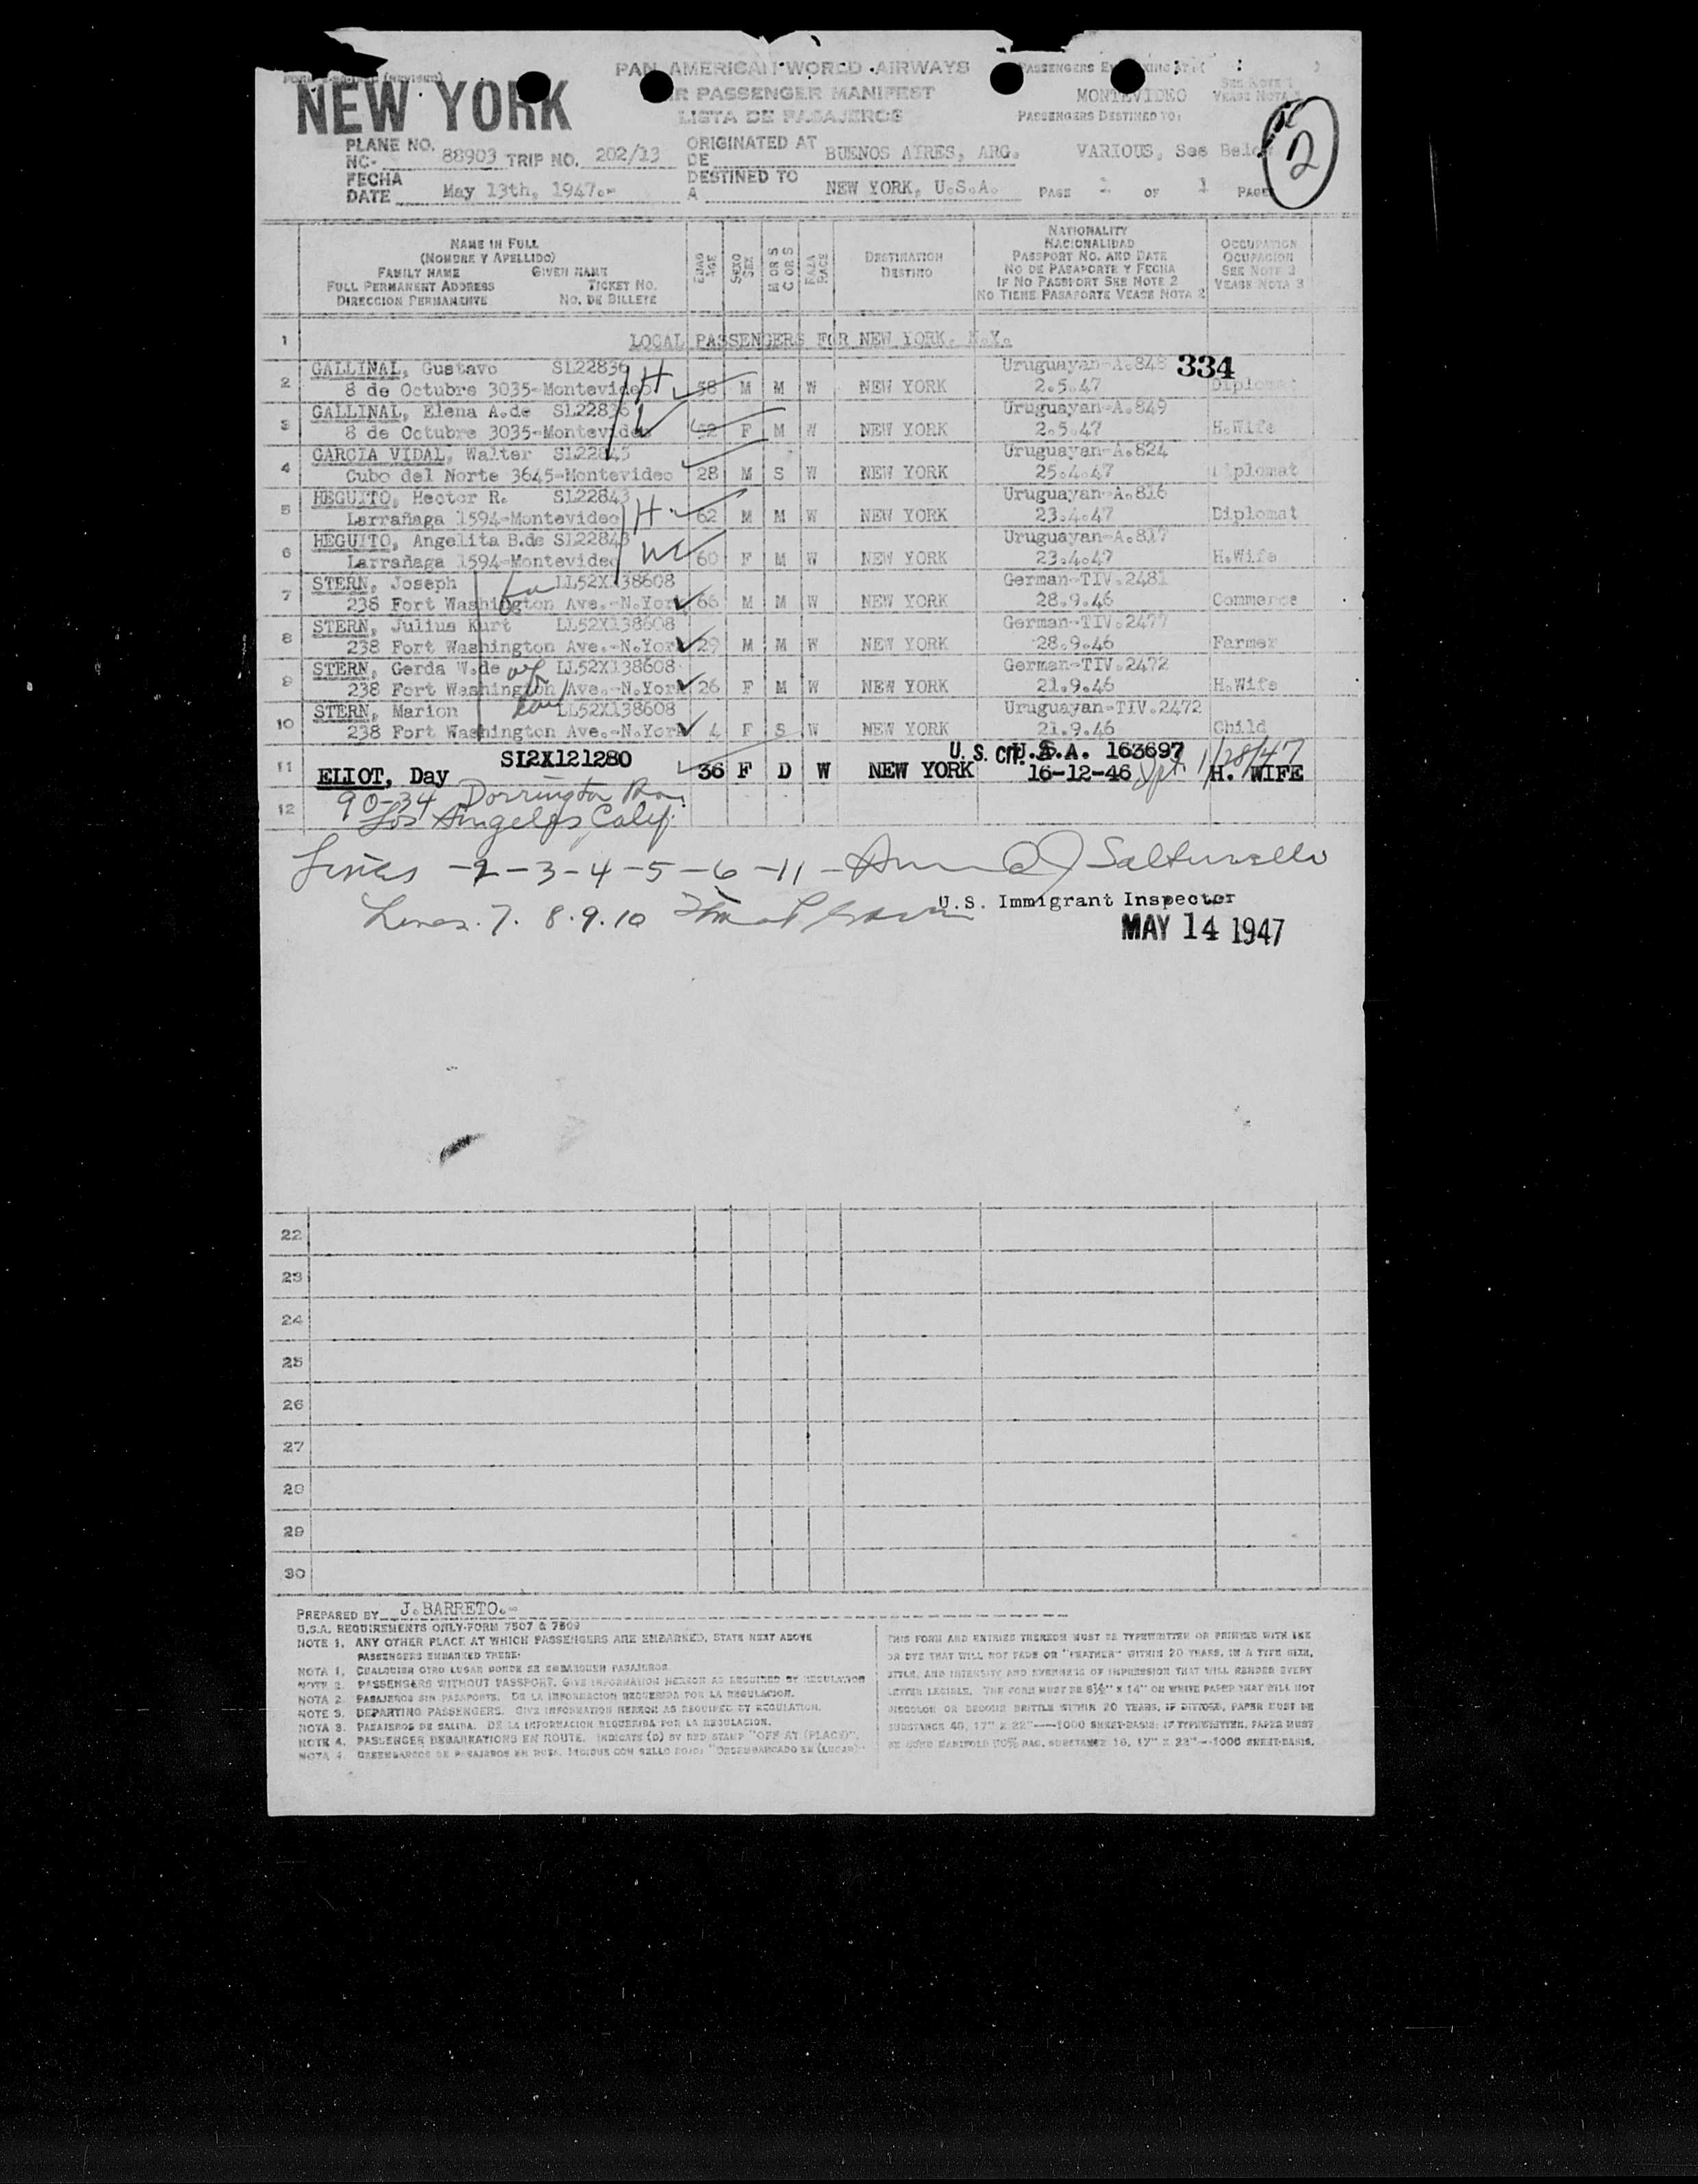 NEW YORK
PAN AMERICAN WORLD AIRWAYS
PASSENGER MANIFEST
LISTA DE PASAJEROS
SEE NOTE 1
MONTEVIDEO VEASE NOTA 1
PASSENGERS DESTINED TO:
2
PLANE NO.
NC- 88903 TRIP NO. 202/13
ORIGINATED AT
DE BUENOS AIRES, ARG.
VARIOUS, See Below
FECHA
DATE May 13th, 1947.-
DESTINED TO
A NEW YORK, U.S.A.
PAGE 1 OF 1 PAGE
NAME IN FULL
(NOMBRE Y APELLIDO)
FAMILY NAME GIVEN NAME
FULL PERMANENT ADDRESS TICKET NO.
DIRECCION PERMANENTE NO. DE BILLETE
EDAD
AGE
SEXO
SEX
M OR S
C OR S
RAZA
RACE
DESTINATION
DESTINO
NATIONALITY
NACIONALIDAD
PASSPORT NO. AND DATE
NO DE PASAPORTE Y FECHA
IF NO PASSPORT SEE NOTE 2
NO TIENE PASAPORTE VEASE NOTA 2
OCCUPATION
OCUPACION
SEE NOTE 3
VEASE NOTA 3
1 LOCAL PASSENGERS FOR NEW YORK. N.Y.
GALLINAL, Gustavo SL22836 Uruguayan-A.848 334
2 8 de Octubre 3035-Montevideo H 58 M M W NEW YORK 2.5.47 Diplomat
GALLINAL, Elena A.de SL22836 Uruguayan-A.849
3 8 de Octubre 3035-Montevideo W 52 F M W NEW YORK 2.5.47 H.Wife
GARCIA VIDAL, Walter SL22845 Uruguayan-A.824
4 Cubo del Norte 3645-Montevideo 28 M S W NEW YORK 25.4.47 Diplomat
HEGUITO, Hector R. SL22843 Uruguayan-A.816
5 Larrañaga 1594-Montevideo H 62 M M W NEW YORK 23.4.47 Diplomat
HEGUITO, Angelita B.de SL22843 Uruguayan-A.817
6 Larrañaga 1594-Montevideo W 60 F M W NEW YORK 23.4.47 H.Wife
STERN, Joseph LL52X138608 German-TIV.2481
7 238 Fort Washington Ave.-N.York 66 M M W NEW YORK 28.9.46 Commerce
STERN, Julius Kurt LL52X138608 German-TIV.2477
8 238 Fort Washington Ave.-N.York 29 M M W NEW YORK 28.9.46 Farmer
STERN, Gerda W.de LL52X138608 German-TIV.2472
9 238 Fort Washington Ave.-N.York 26 F M W NEW YORK 21.9.46 H.Wife
STERN, Marion LL52X138608 Uruguayan-TIV.2472
10 238 Fort Washington Ave.-N.York 4 F S W NEW YORK 21.9.46 Child
SL2X121280 U. S. CIT. U.S.A. 163697 1/28/47
11 ELIOT, Day 36 F D W NEW YORK 16-12-46 H. WIFE
12 90-34 Dorrington
Los Angeles, Calif.
Lines -2-3-4-5-6-11-
U.S. Immigrant Inspector
Lines. 7. 8. 9. 10
MAY 14 1947
22
23
24
25
26
27
28
29
30
PREPARED BY J.BARRETO.-
U.S.A. REQUIREMENTS ONLY-FORM 7507 & 7509
NOTE 1. ANY OTHER PLACE AT WHICH PASSENGERS ARE EMBARKED, STATE NEXT ABOVE
PASSENGERS EMBARKED THERE:
NOTA 1. CUALQUIER OTRO LUGAR DONDE SE EMBARQUEN PASAJEROS.
NOTE 2. PASSENGERS WITHOUT PASSPORT. GIVE INFORMATION HEREON AS REQUIRED BY REGULATION
NOTA 2. PASAJEROS SIN PASAPORTE. DE LA INFORMACION REQUERIDA POR LA REGULACION.
NOTE 3. DEPARTING PASSENGERS. GIVE INFORMATION HEREON AS REQUIRED BY REGULATION.
NOTA 3. PASAJEROS DE SALIDA. DE LA INFORMACION REQUERIDA POR LA REGULACION.
NOTE 4. PASSENGER DEBARKATIONS EN ROUTE. INDICATE (D) BY RED STAMP "OFF AT (PLACE)".
NOTA 4. DESEMBARCOS DE PASAJEROS EN RUTA. INDIQUE CON SELLO ROJO: "DESEMBARCADO EN (LUGAR)"
THIS FORM AND ENTRIES THEREON MUST BE TYPEWRITTEN OR PRINTED WITH INK
OR DYE THAT WILL NOT FADE OR "FEATHER" WITHIN 20 YEARS, IN A TYPE SIZE,
STYLE, AND INTENSITY AND EVENNESS OF IMPRESSION THAT WILL RENDER EVERY
LETTER LEGIBLE. THE FORM MUST BE 8½" X 14" ON WHITE PAPER THAT WILL NOT
DISCOLOR OR BECOME BRITTLE WITHIN 20 YEARS, IF DITTOED, PAPER MUST BE
SUBSTANCE 40, 17" X 22"—1000 SHEET-BASIS; IF TYPEWRITTEN, PAPER MUST
BE BOND MANIFOLD 50% RAG, SUBSTANCE 16, 17" X 22"—1000 SHEET-BASIS.